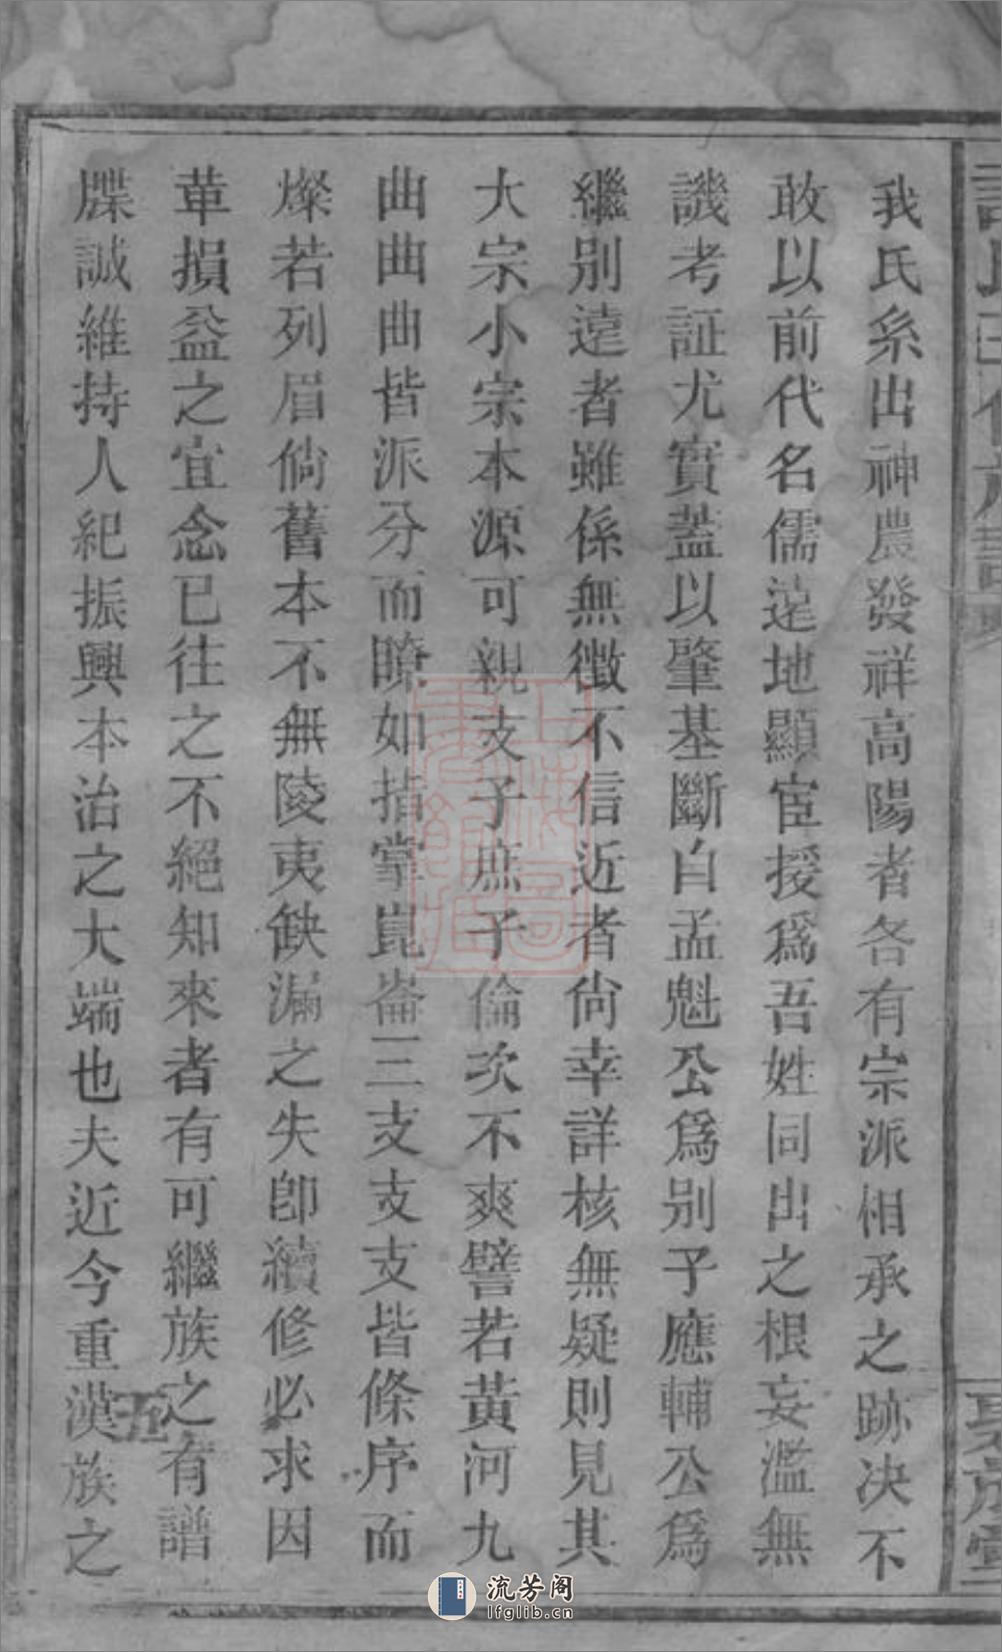 我氏系出神農發祥高陽者各有宗派相承之跡决不
敢以前代名儒遠地顯宦授爲吾姓同出之根妄濫無
譏考証尤實蓋以肇基斷自孟魁公爲别子應輔公爲
繼别遠者雖係無徵不信近者尙幸詳核無疑則見其
大宗小宗本源可親支子庶子倫次不爽譬若黃河九
曲曲曲皆派分而瞭如指掌崑崙三支支支皆條序而
燦若列眉倘舊本不無陵夷缺漏之失卽續修必求因
革損益之宜念已往之不絕知來者有可繼族之有譜
牒誠維持人紀振興本治之大端也夫近今重漢族之
五
流芳阁
lfglib.cn